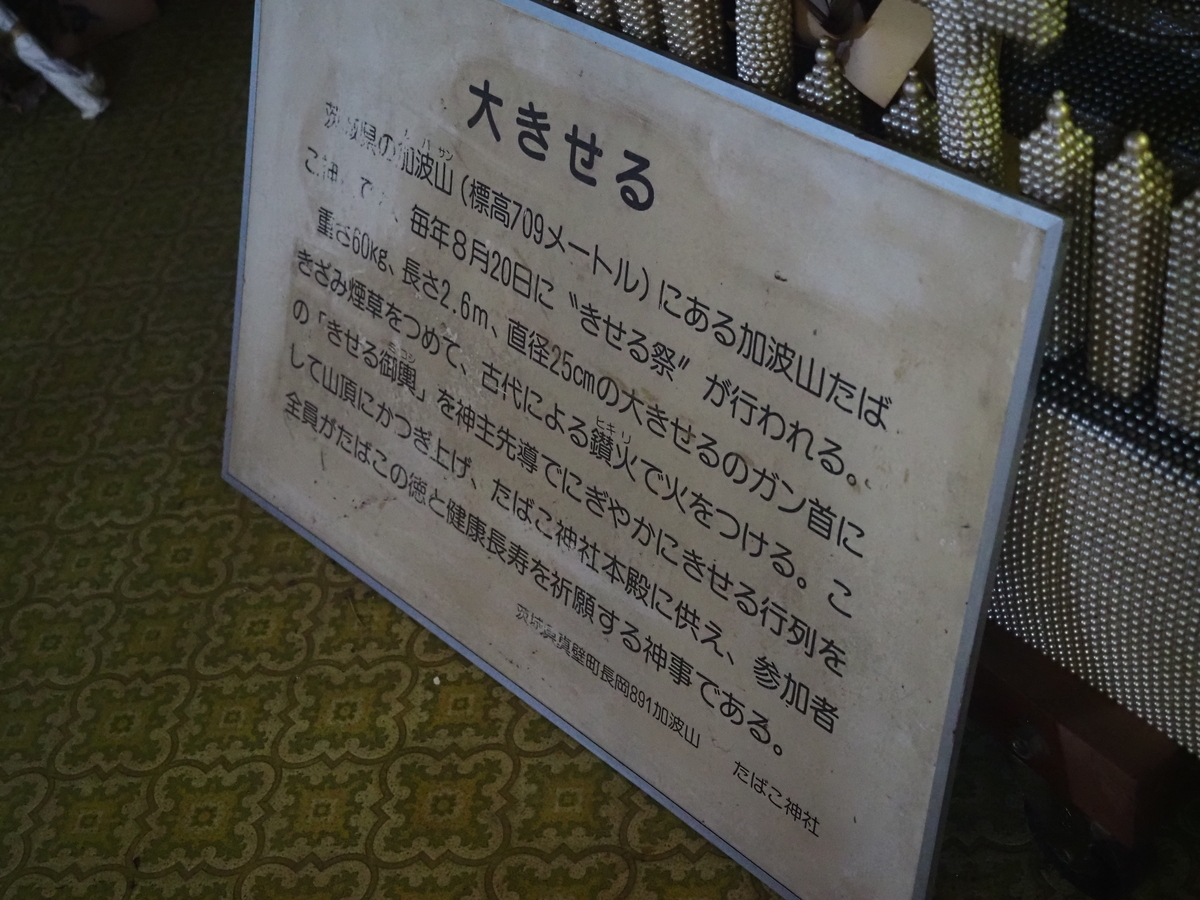 大きせる
茨城県の加波山（標高709メートル）にある加波山たば
こ神 で 、毎年8月20日に〝きせる祭〟が行われる。
重さ60kg、長さ2.6m、直径25cmの大きせるのガン首に
きざみ煙草をつめて、古代による鑚火で火をつける。こ
の「きせる御輿」を神主先導でにぎやかにきせる行列を
して山頂にかつぎ上げ、たばこ神社本殿に供え、参加者
全員がたばこの徳と健康長寿を祈願する神事である。
茨城県真壁町長岡891加波山 たばこ神社